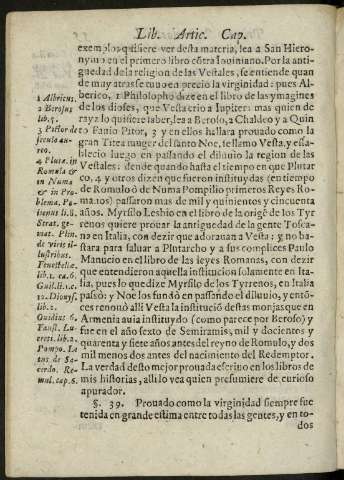 Lib. Artic. Cap.
exemplos quisiere ver desta materia, lea a San Hiero-
nymo en el primero libro cõtra Iouiniano. Por la anti-
guedad de la religion de las Vestales, se entiende quan
de muy atras se tuuo en precio la virginidad: pues Al-
berico, 1 Philosopho dize en el libro de las ymagines
de los dioses, que Vesta crio a Iupiter: mas quien de
rayz lo quisiere saber, lea a Beroso, 2 Chaldeo y a Quin
to Fauio Pitor, 3 y en ellos hallara prouado como la
gran Titea muger del santo Noe, se llamo Vesta, y esta-
blecio luego en passando el diluuio la region de las
Vestales: dende quando hasta el tiempo en que Plutar
co, 4 y otros dizen que fueron instituydas (en tiempo
de Romulo ò de Numa Pompilio primeros Reyes Ro-
manos) passaron mas de mil y quinientos y cincuenta
años. Myrsilo Lesbio en el libro de la origẽ de los Tyr
renos quiere prouar la antiguedad de la gente Tosca-
no en Italia, con dezir que adorauan a Vesta: y no ba-
stara para saluar a Plutarcho y a sus complices Paulo
Manucio en el libro de las leyes Romanas, con dezir
que entendieron aquella institucion solamente en Ita-
lia, pues lo que dize Myrsilo de los Tyrrenos, en Italia
passò: y Noe los fundò en passando el diluuio, y entõ-
ces renouò alli Vesta la instituciõ destas monjas que en
Armenia auia instituydo (como parece por Beroso) y
fue en el año sexto de Semiramis, mil y docientos y
quarenta y siete años antes del reyno de Romulo, y dos
mil menos dos antes del nacimiento del Redemptor.
La verdad desto mejor prouada escriuo en los libros de
mis historias, alli lo vea quien presumiere de curioso
apurador.
§. 39. Prouado como la virginidad siempre fue
tenida en grande estima entre todas las gentes, y en to-
dos
1 Albricus.
2 Berosus
lib. 5.
3 Pictor de
seculo au-
reo.
4 Plutar. in
Romulo &
in Numa
& in Pro-
blema. Po-
lienus li. 8.
Strat. ge-
mat. Plin.
de viris il-
lustribus.
Fenestellæ.
lib. 1. ca. 6.
12. Dionys.
lib. 2.
Ouidius 6.
Fast. Lu-
creti. lib. 2.
Pompo. Læ
tus de Sa-
cerdo. Ro-
mul. cap. 6.